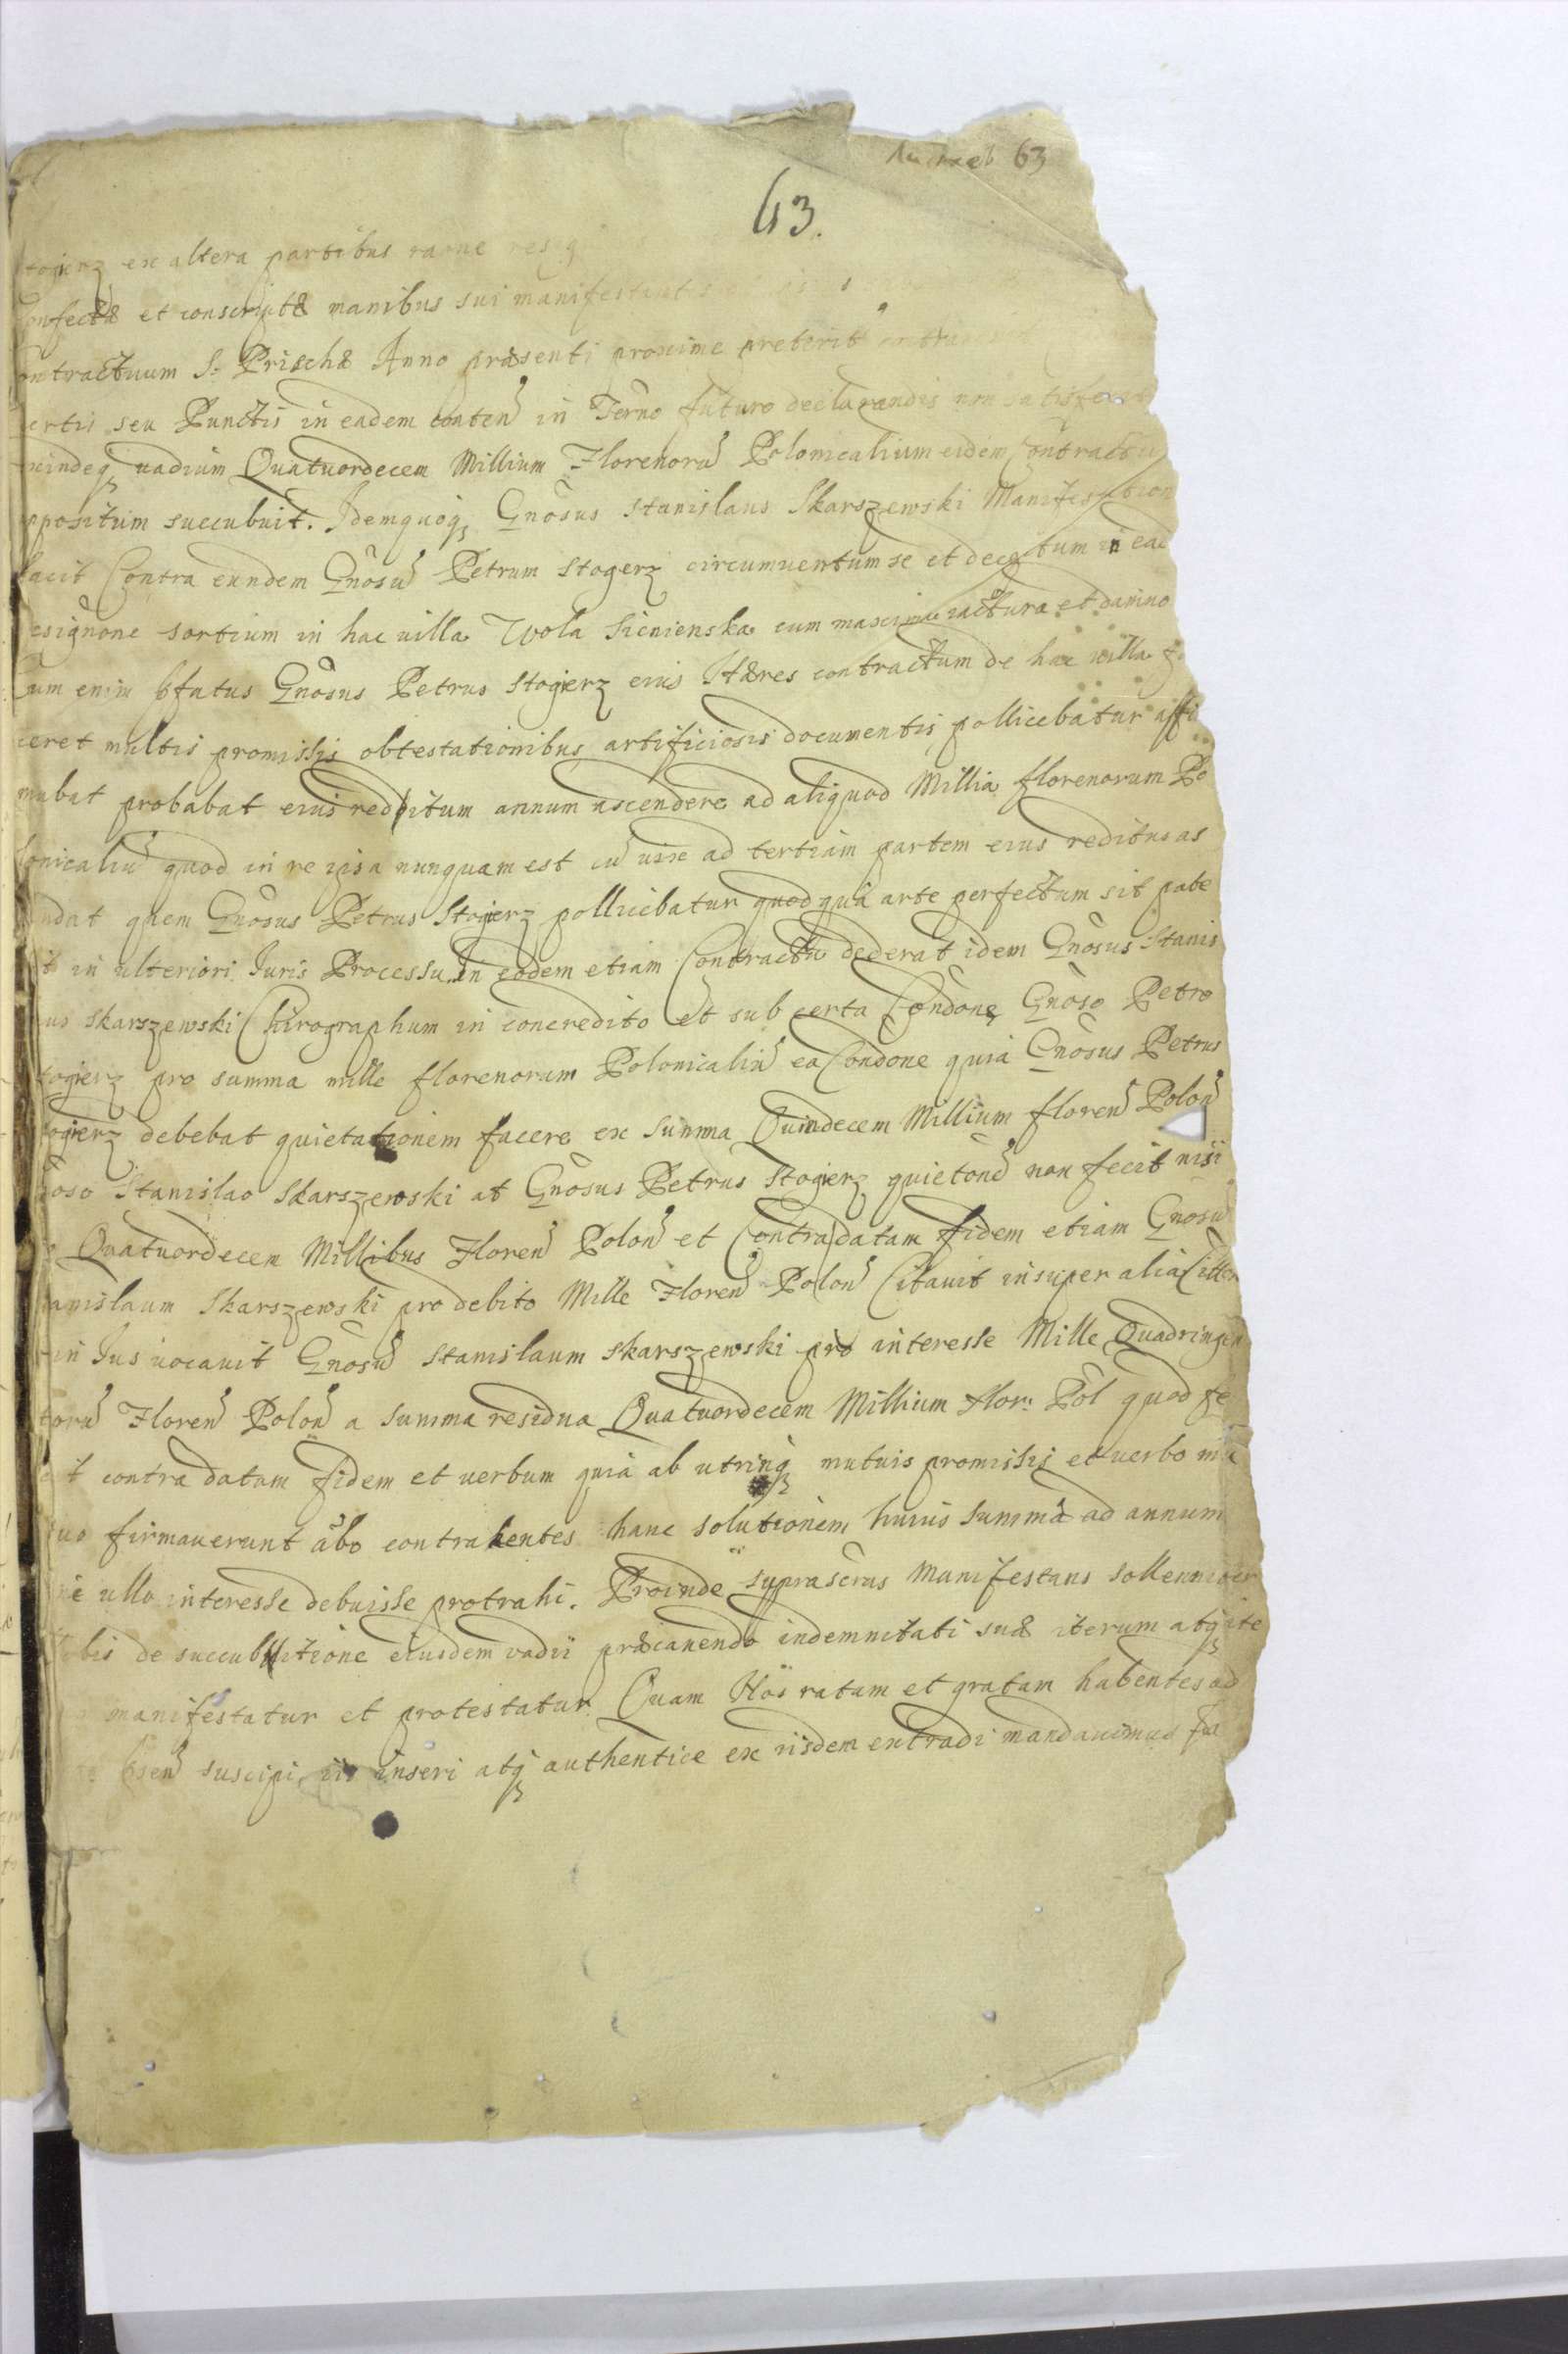 63
63.
ex altera partibus raone
confectæ et conscriptæ manibus sui
contractuum S. Prischæ Anno præsenti proxime preterit
certis seu Punctis in eadem conten in Terno futuro declarandis non satisfecit
indeq vadium Quatuordecem Millium Florenoru Polonicalium eidem Contractu
ppositum succubuit. Idemquoq Gnosus Stanislaus Skarszewski Manifestation
facit Contra eundem Gnosu Petrum Stogierz circumuentum se et deceptum in ead
esignone sortium in hac uilla Wola Sicnienska cum maxima iactura et damno
Cum enim pfatus Gnosus Petrus Stogierz eius Hæres contractum de hac uilla
ceret multis promissis obtestationibus artificiosis documentis pollicebatur affi
mabat probabat eius redditum annum ascendere ad aliquod Millia florenorum Po
lonicaliu quod in re ipsa nunquam est cu uix ad tertiam partem eius reditus as
ndat quem Gnosus Petrus Stogierz pollicebatur quod qua arte perfectum sit pate
it in ulteriori Iuris Processu. In eodem etiam Contractu dederat idem Gnosus Stanis
us Skarszewski Chirographum in concredito et sub certa Condone Gnoso Petro
togierz pro summa mille florenorum Polonicaliu ea Condone quia Gnosus Petrus
ogierz debebat quietationem facere ex Summa Quindecem Millium floren Polon
noso Stanislao Skarszewski at Gnosus Petrus Stogierz quieton non fecit nisi
Quatuordecem Millibus Floren Polon et Contra datam fidem etiam Gnosu
tanislaum Skarszewski pro debito Mille Floren Polon Citauit insuper alia
in Ius uocauit Gnosu Stanislaum Skarszewski pro interesse Mille Quadringen
toru Floren Polon a summa residua Quatuordecem Millium Flor: Pol quod fe
it contra datam fidem et uerbum quia ab utrinq mutuis promissis et uerbo mu
tuo firmauerunt abo contrahentes hanc solutionem huius Summæ ad annum
ne ullo interesse debuisse protrahi. Proinde suprascrus Manifestans sollenniter
de succubuitione eiusdem vadii præcauendo indemnitati suæ iterum atq ite
manifestatur et protestatur. Quam Nos ratam et gratam habentes ad
psen suscipi iis inseri atq authentice ex iisdem extradi mandauimus